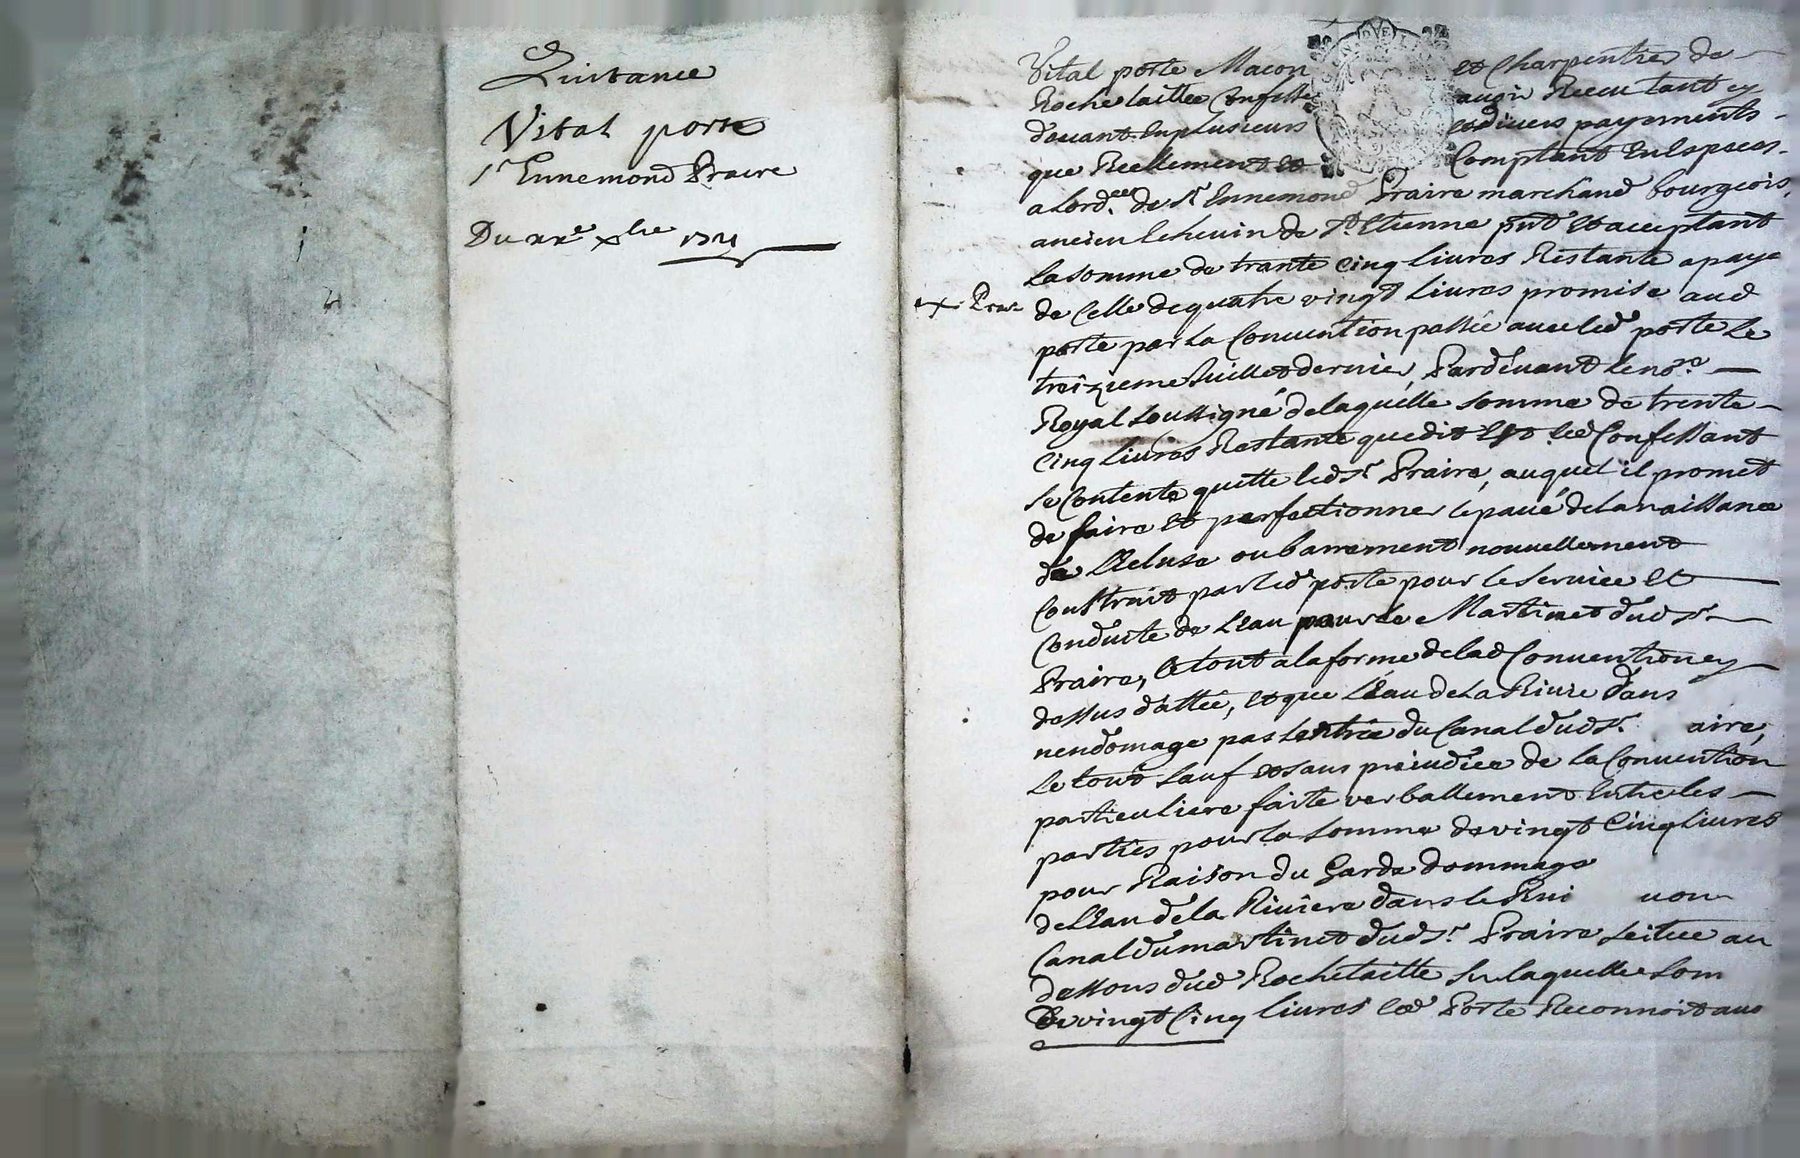 Quitance
Vital porte
Sr Ennemond Praire
Du xxe xbre
Vital porte Macon et Charpentier de
Rochetaillée Confesse avoir Receu tant cy
devant En plusieurs et divers payements
que Reellement et Comptant En Especes
a Lord. de Sr Ennemond Praire marchand bourgeois
ancien Echevin de St Etienne pnt et acceptant
La somme de trante Cinq livres Restante a paye
de Celle de quatre vingt livres promise aud
porte par la Convention passée avec led porte Le
treizieme Juillet dernier, Pardevant le nore
Royal soussigné de laquelle somme de trente
Cinq livres Restante que dit Est led Confessant
se Contente quitte led Sr Praire, auquel il promet
de faire et perfectionner le pavé de la naissance
de L'Ecluse ou barrement nouvellement
Construit par led porte pour le service et
Conduite de L'Eau pour le Martinet dud Sr
Praire, Le tout a la forme de lad Convention cy
dessus dattée, et que L'Eau de La Rivie dans
nendomage pas L'entrée du Canal dud Sr aire,
Le tout sauf et sans preiudice de la Convention
particuliere faite verballement Entre les
parties pour la somme de vingt Cinq livres
pour Raison du Garde dommage
de L'Eau de la Riviere dans le
Canal du martinet dud Sr Praire scitue au
dessous dud Rochetaille sur laquelle som
De vingt Cinq livres led Porte Reconnoit avo